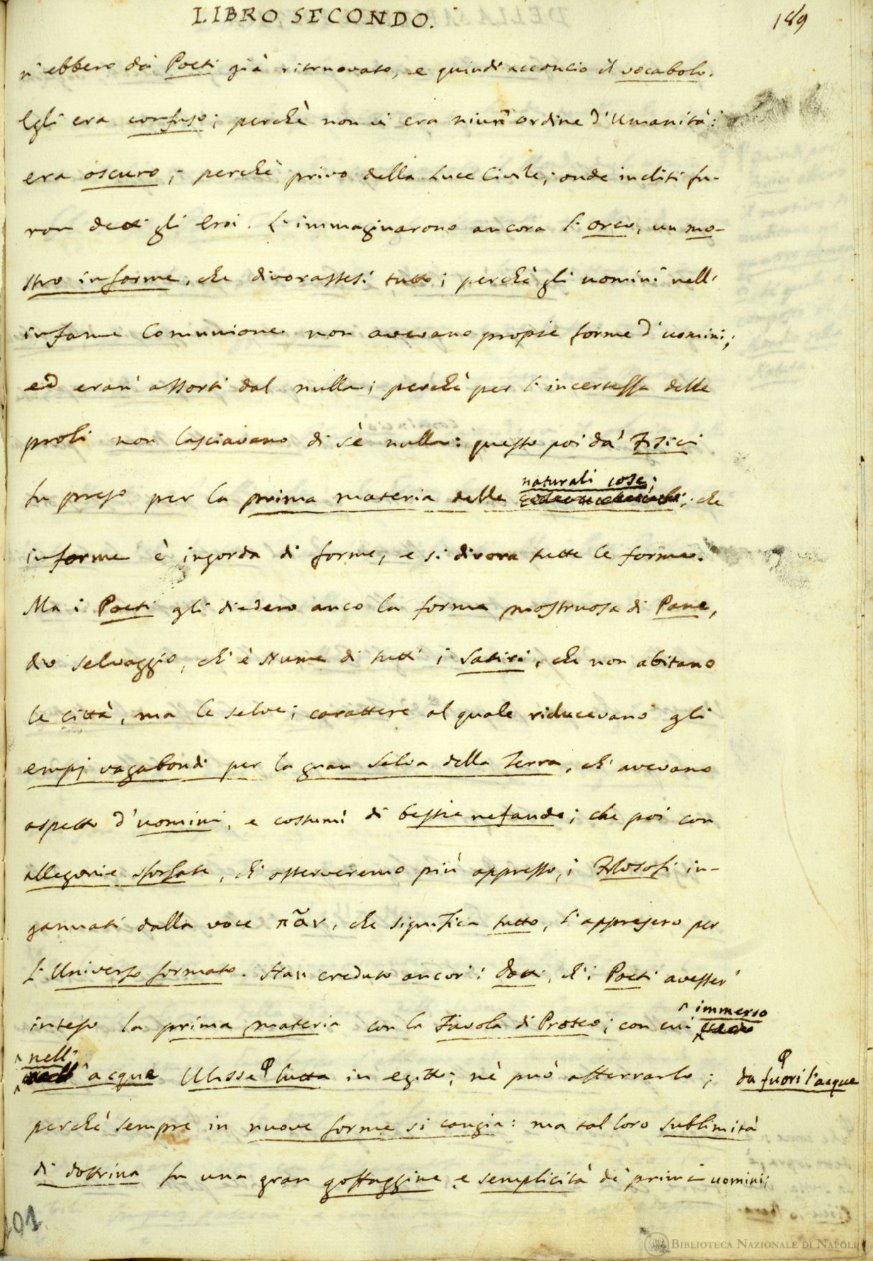 LIBRO SECONDO. 189
n' ebbero da' Poeti già ritruovato, e quindi acconcio il vocabolo.
Egli era confuso; perchè non v' era niun' ordine d' Umanità:
era oscuro; perchè privo della Luce Civile; onde incliti fu-
ron detti gli Eroi. L' immaginarono ancora l' Orco, un mo-
stro informe, che divorassesi tutto; perchè gli uomini nell'
infame Comunione non avevano propie forme d' uomini;
ed eran' assorti dal nulla; perchè per l' incertezza delle
proli non lasciavano di sè nulla: questo poi da' Fisici
fu preso per la prima materia delle naturali cose; che
informe è ingorda di forme, e si divora tutte le forme.
Ma i Poeti gli diedero anco la forma mostruosa di Pane,
dio selvaggio, ch' è Nume di tutti i Satiri, che non abitano
le città, ma le selve; carattere al quale riducevano gli
empj vagabondi per la gran Selva della Terra, ch' avevano
aspetto d' uomini, e costumi di bestie nefande; che poi con
allegorie sforzate, ch' osserveremo più appresso, i Filosofi in-
gannati dalla voce πᾶν, che significa tutto, l' appresero per
l' Universo formato. Han creduto ancor' i Dotti, ch' i Poeti avesser'
inteso la prima materia con la Favola di Proteo; con cui immerso
nell' acque Ulisse lutta in egitto; nè può afferrarlo; da fuori l' acque
perchè sempre in nuove forme si cangia: ma tal loro sublimità
di dottrina fu una gran goffaggine, e semplicità de' primi uomini;
101
BIBLIOTECA NAZIONALE DI NAPOLI